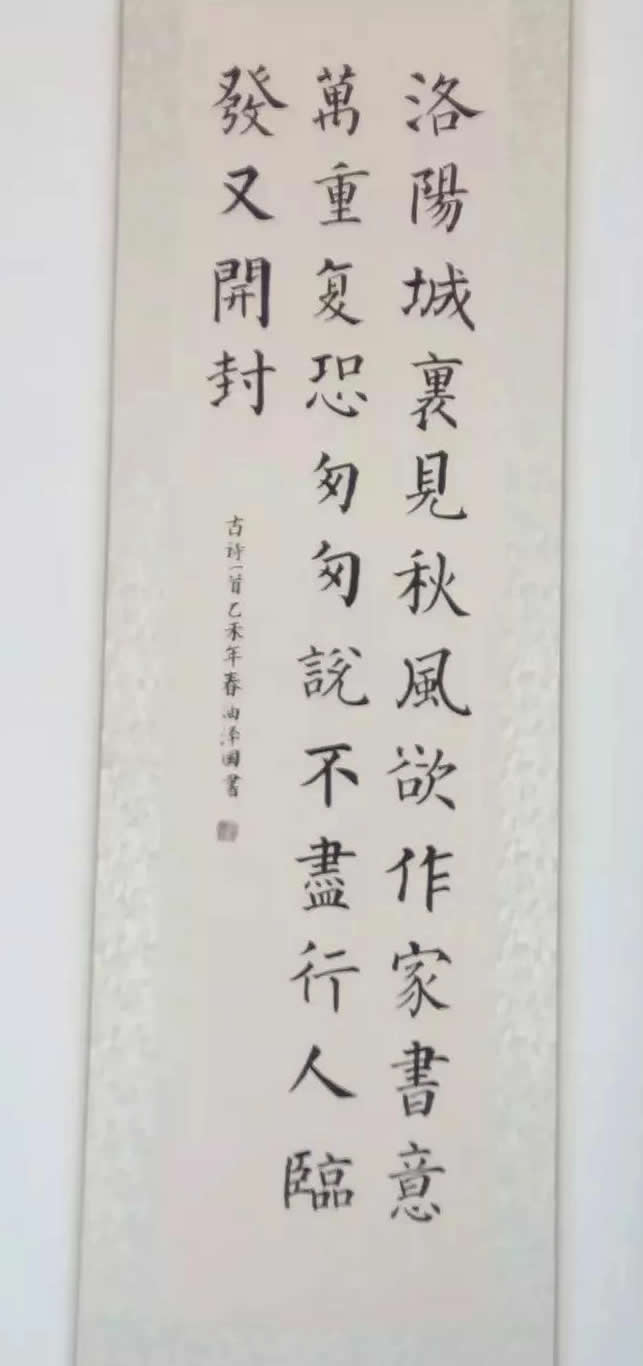 洛陽城裏見秋風欲作家書意
萬重复恐匆匆說不盡行人臨
發又開封
古诗一首乙未年春油泽国書